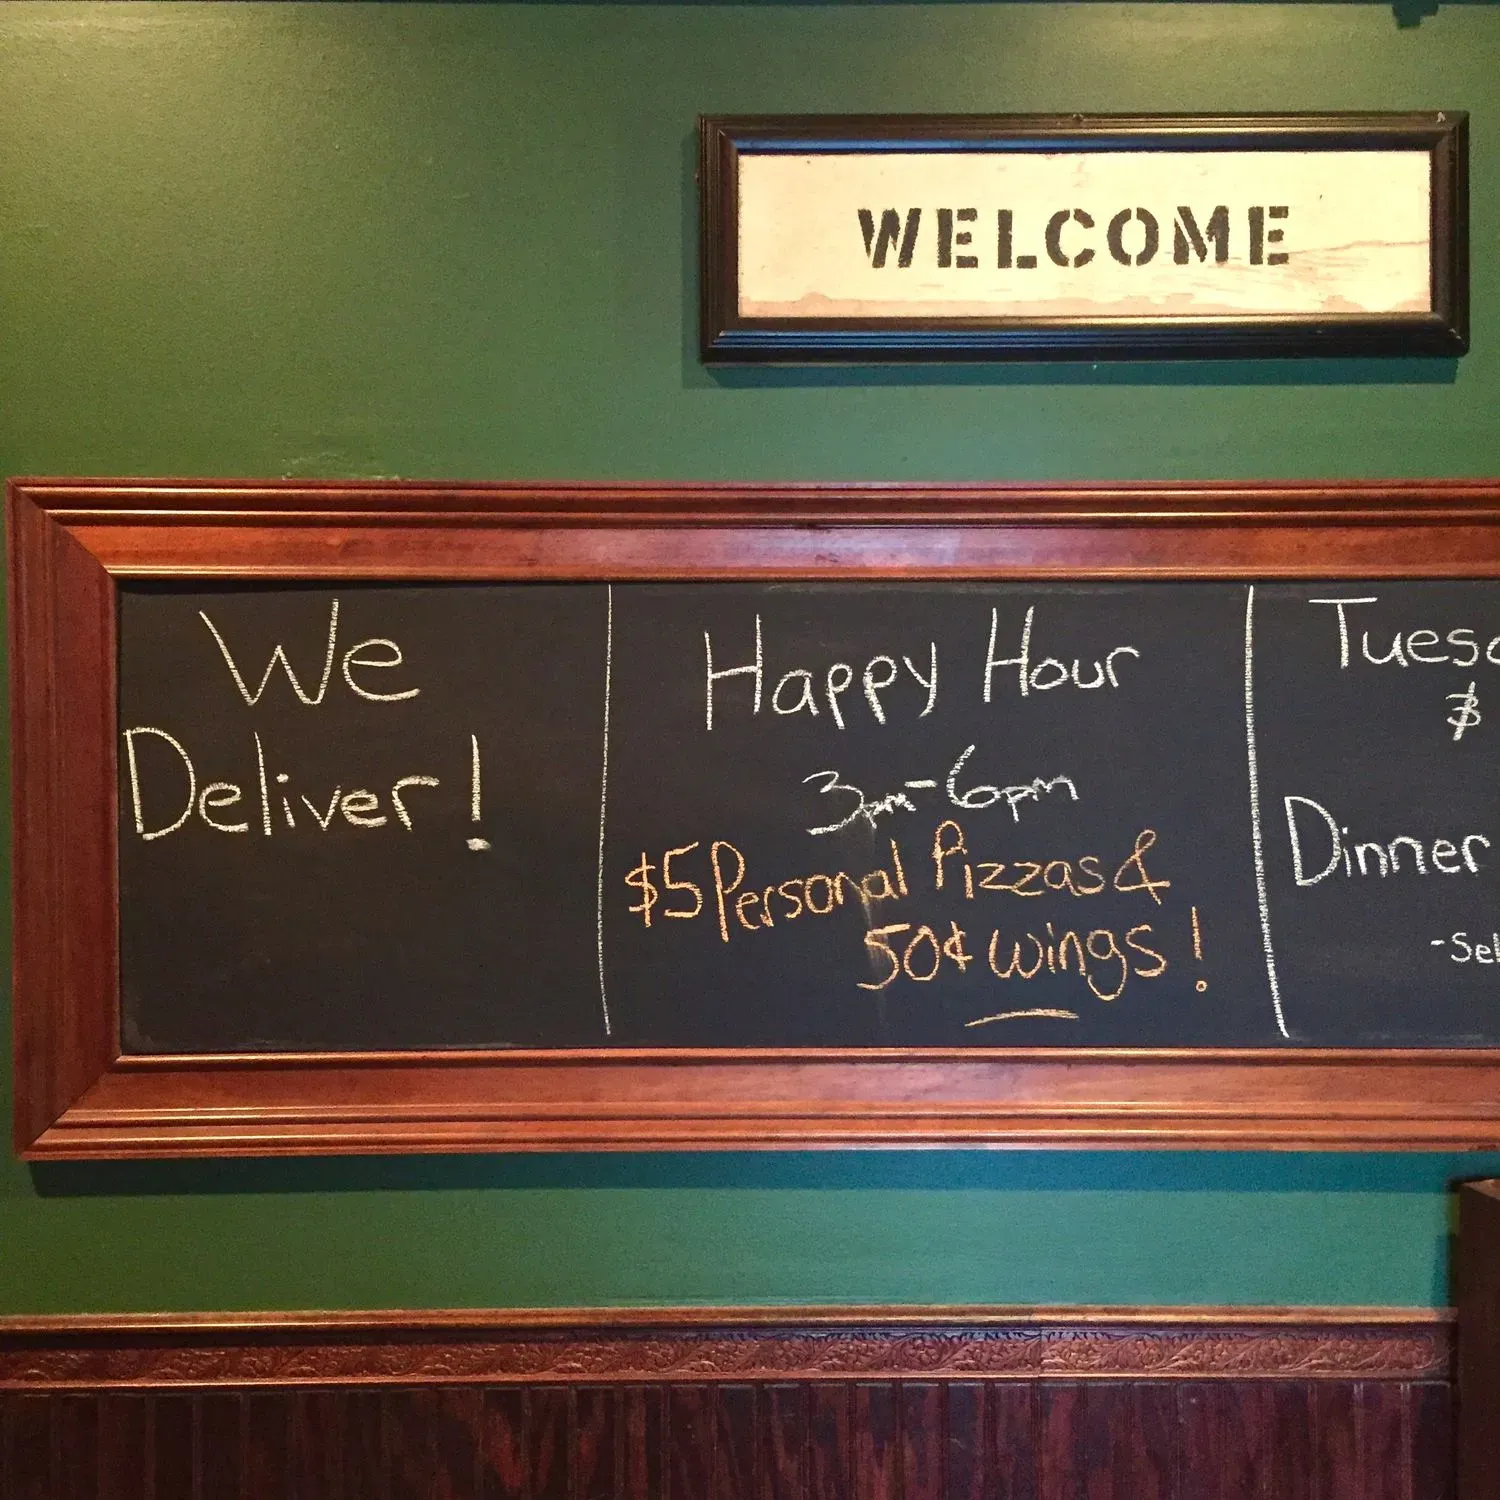 WELCOME
We
Deliver!
Happy Hour
3pm-6pm
$5 Personal Pizzas &
50¢ wings!
$
Dinner